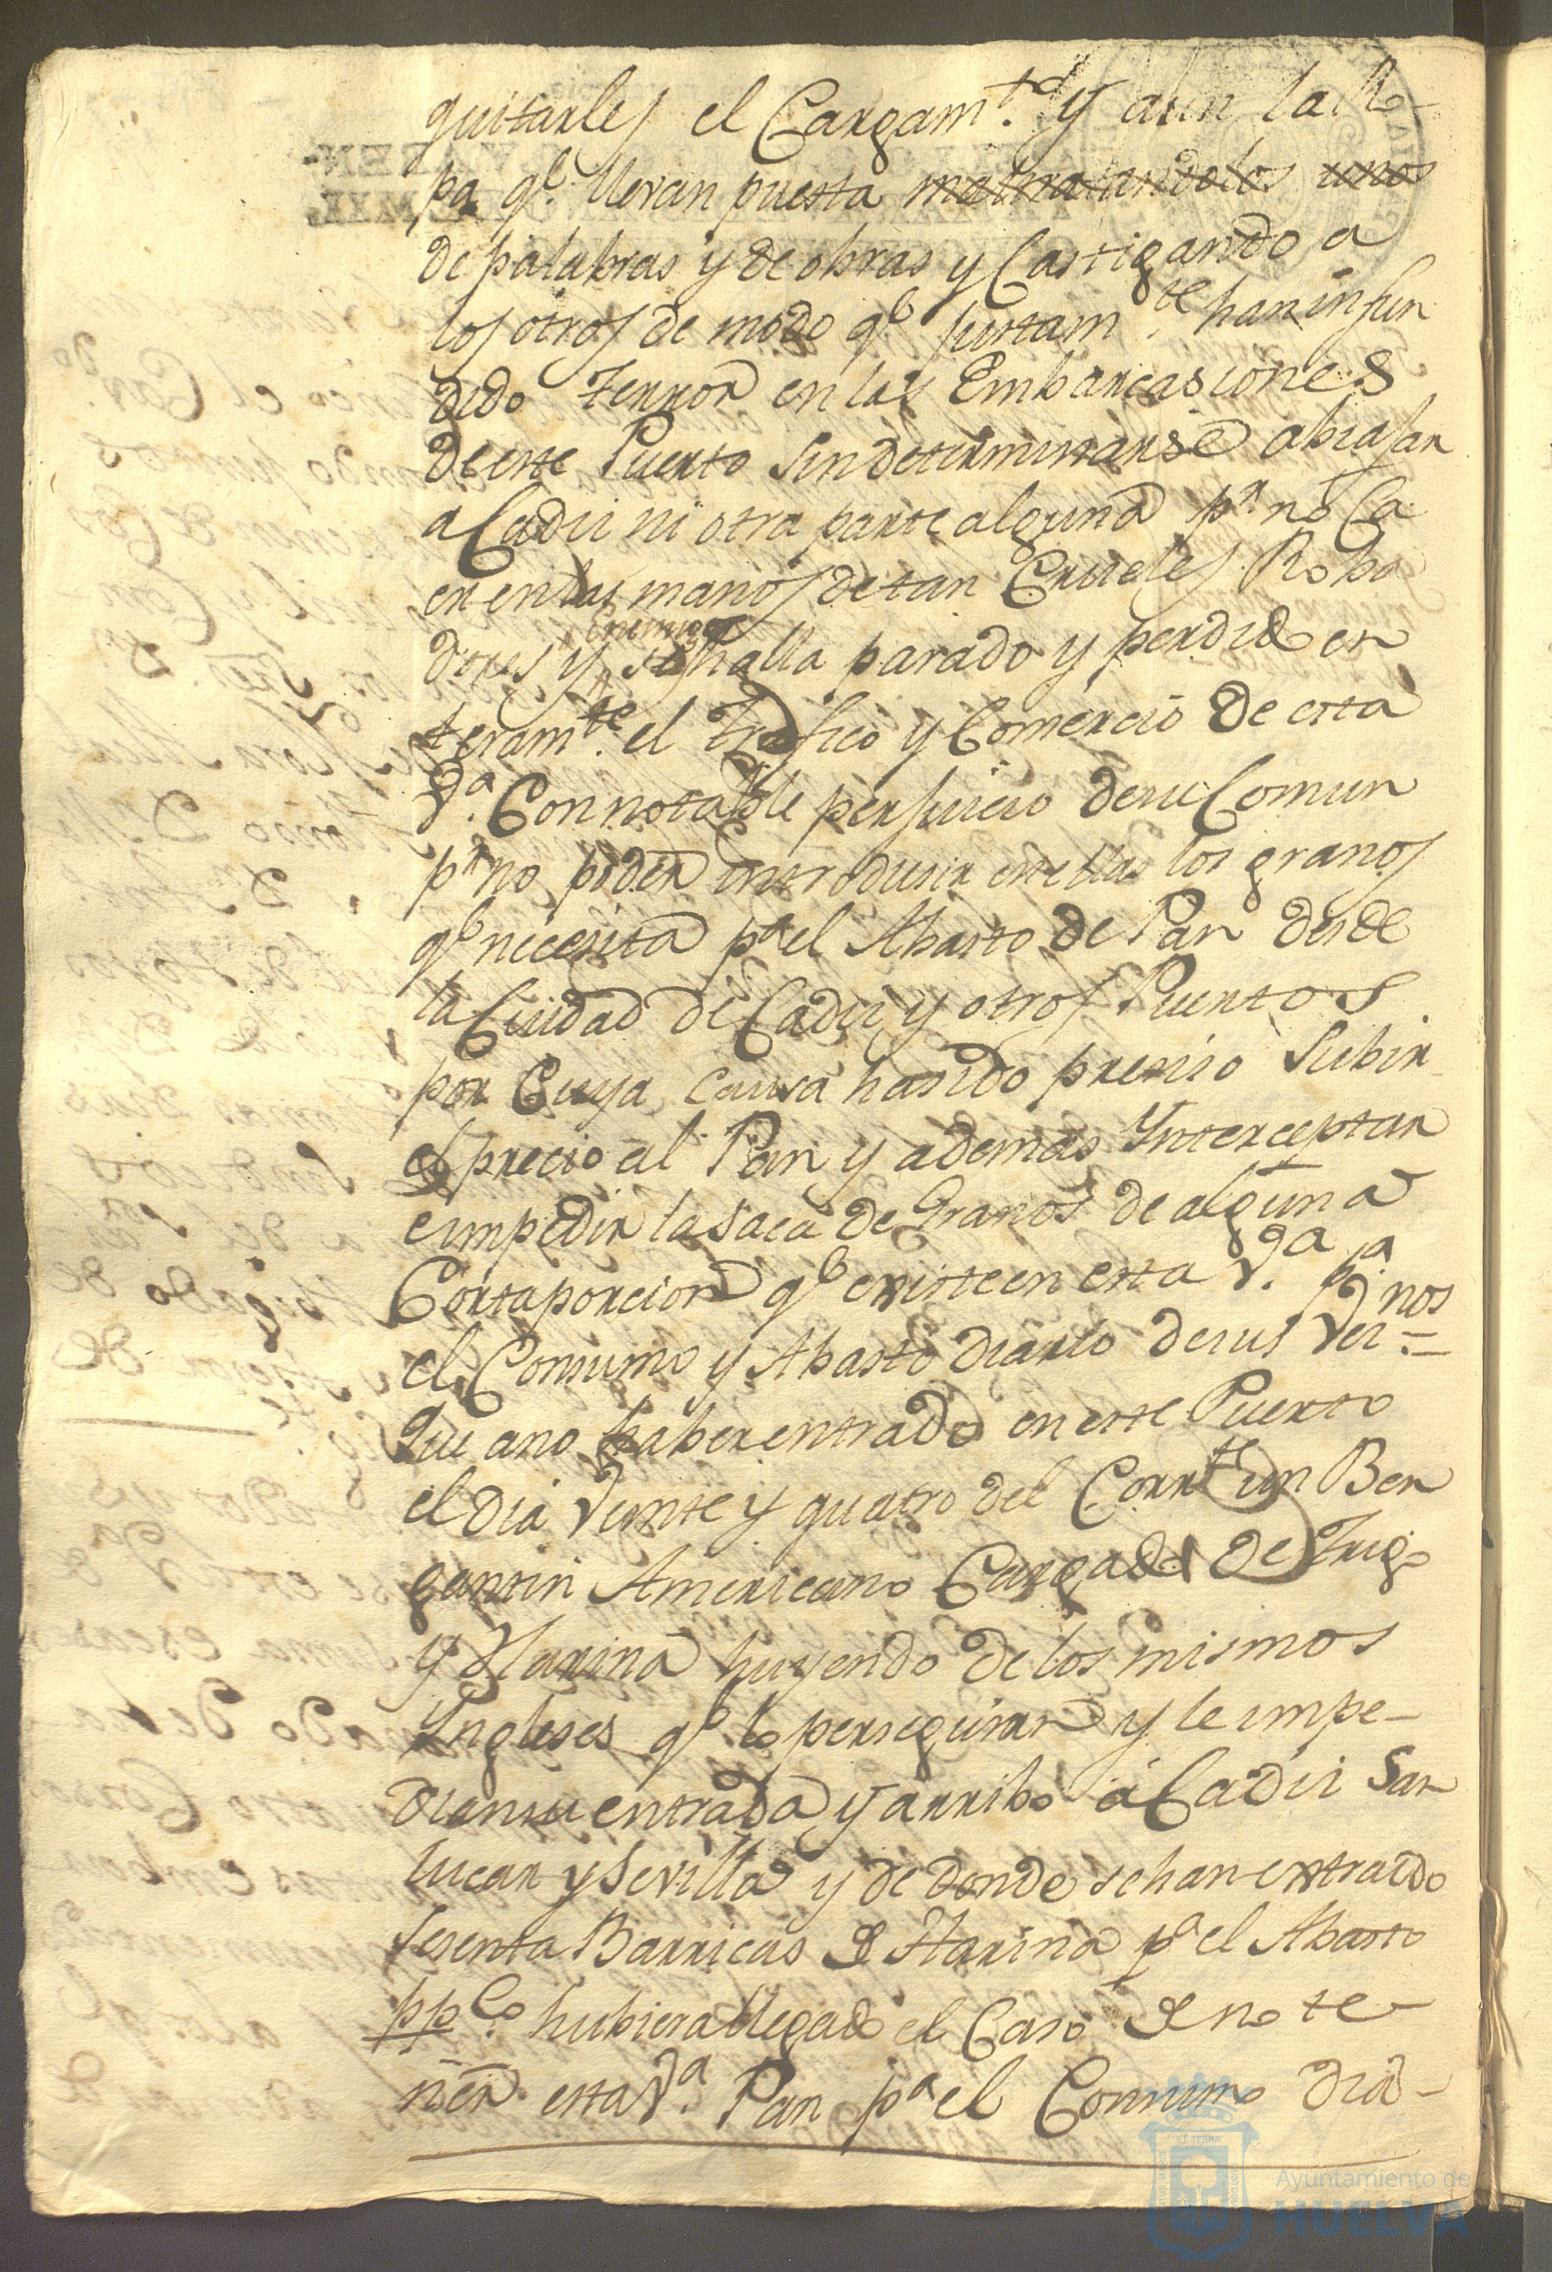 quitarles el Cargam.to y aun la Ro-
pa q.e llevan puesta maltratandolos unos
de palabras y de obras y Castigando a
los otros de modo q.e justam.te han infun
dido terror en las Embarcasiones
de este Puerto sin determinarse abiajar
a Cadiz ni otra parte alguna p.r no Ca
er en las manos de tan Crueles Roba
dores y enemigos se halla parado y perdido en
teram.te el Trafico y Comercio de esta
V.a Con notable perjuicio de su Comun
p.r no poder introdusir en ellas los granos
q.e necesita p.a el Abasto de Pan desde
la Ciudad de Cadiz y otros Puertos
por Cuya causa ha sido presiso Subir
el precio al Pan y ademas Ynterceptar
e impedir la saca de Granos de alguna
Corta porcion q.e existe en esta V.a p.a
el Consumo y Abasto diario de sus Vei.nos
Que a no haber entrado en este Puerto
el dia Veinte y quatro del Corr.te un Ber
gantin Americano Cargado de Trigo
y Harina huyendo de los mismos
Yngleses q.e lo perseguian y le impe-
dian su entrada y arribo a Cadiz San
lucar y Sevilla y de donde se han extraido
sesenta Barricas de Harina p.a el Abasto
pp.co hubiera llegado el Caso de no te-
ner esta V.a Pan p.a el Consumo dia-
Ayuntamiento de
HUELVA